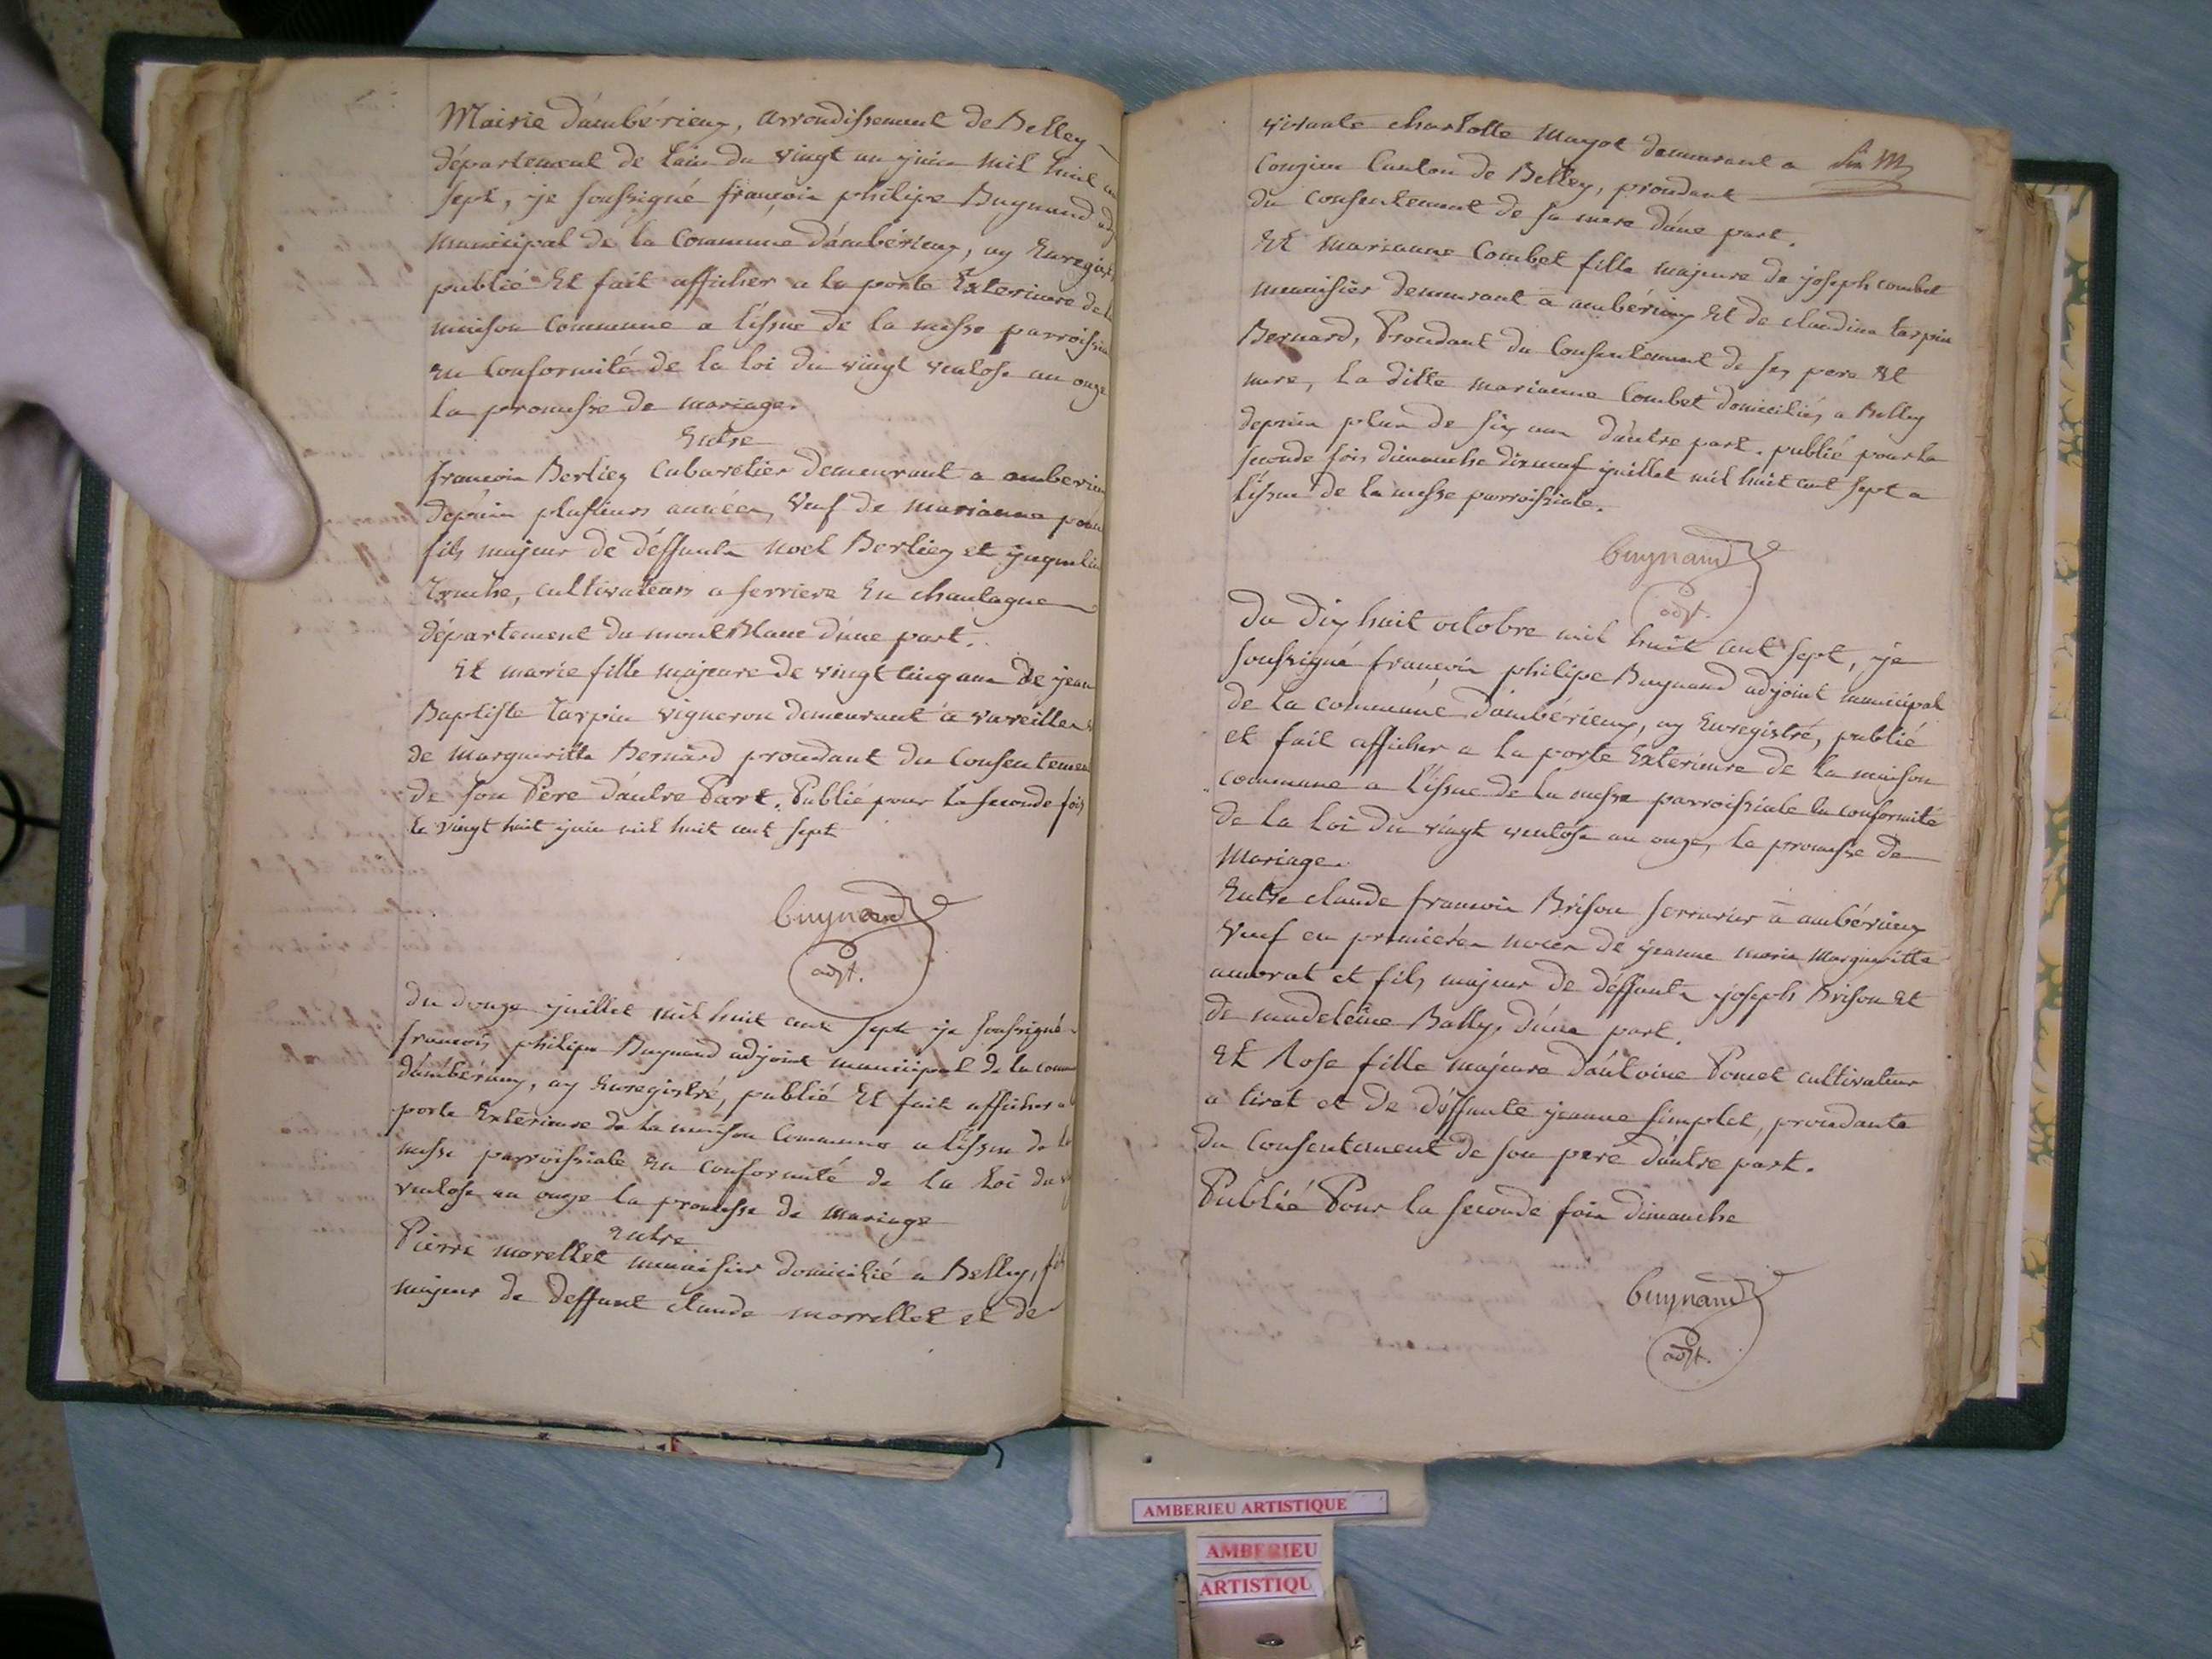 Mairie d'ambérieux, arrondissement de Belley
département de lain du vingt un juin mil huit
sept, je soussigné françois philipe Buynand
municipal de la Commune d'ambérieux, ay Enregist
publié Et fait afficher a la porte Exterieure de
maison Commune a l'issue de la messe parroissi
en Conformité de la loi du vingt ventose an onze
la promesse de mariage.
Entre
francois Berliez Cabaretier demeurant a amberieu
depuis plusieurs années, veuf de marianne
fils majeur de déffunts noel Berliez et
cultivateurs a ferriere En chautagne
département du mont Blanc d'une part.
Et marie fille majeure de vingt cinq ans de jean
Baptiste tarpin vigneron demeurant a vareilles
de Margueritte Bernard procedant du Consentemen
de son Pere d'autre Part. Publié pour la seconde fois
le vingt huit juin mil huit cent sept
Buynand
adjt.
du douze juillet mil huit cent sept je soussigné
francois philipe Buynand adjoint municipal de la comm
d'ambérieux, ay Enregistré, publié Et fait afficher a
porte Exterieure de la maison Commune a l'issue de la
messe parroissiale en conformité de la loi du
ventose an onze la promesse de mariage
Entre
Pierre morellet menuisier domicilié a Belley, fils
majeur de deffunt claude morrellet et de
vivante charlotte Mayot demeurant a
Conzieu Canton de Belley, procedant
du consentement de sa mere d'une part.
Et marianne Combet fille majeure de joseph combet
menuisier demeurant a ambérieux Et de claudine tarpin
Bernard, Procedant du Consentement de ses pere Et
mere, la ditte marianne Combet domiciliée a Belley
depuis plus de six ans d'autre part. publié pour la
seconde fois dimanche dixneuf juillet mil huit cent sept a
l'issue de la messe parroissiale.
Buynand
adjt.
du dix huit octobre mil huit cent sept, je
soussigné françois philipe Buynand adjoint municipal
de la commune d'ambérieux, ay Enregistré, publié
et fait afficher a la porte Exterieure de la maison
commune a l'issue de la messe parroissiale en conformité
de la loi du vingt ventose an onze, la promesse de
Mariage.
Entre claude francois Brison serrurier a ambérieux
veuf en premieres noces de jeanne marie Margueritte
amorat et fils majeur de déffunts joseph Brison Et
de madeleine Bally, d'une part.
Et Rose fille majeure d'antoine Pomet cultivateur
a tiret et de déffunte jeanne simplet, procedante
du Consentement de son pere d'autre part.
Publié Pour la seconde fois dimanche
Buynand
adjt.
AMBERIEU ARTISTIQUE
AMBERIEU
ARTISTIQU